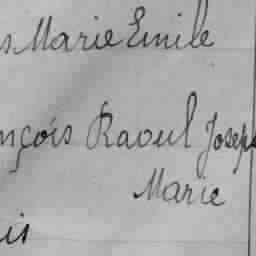 s Marie Emile
nçois Raoul Joseph
Marie
is